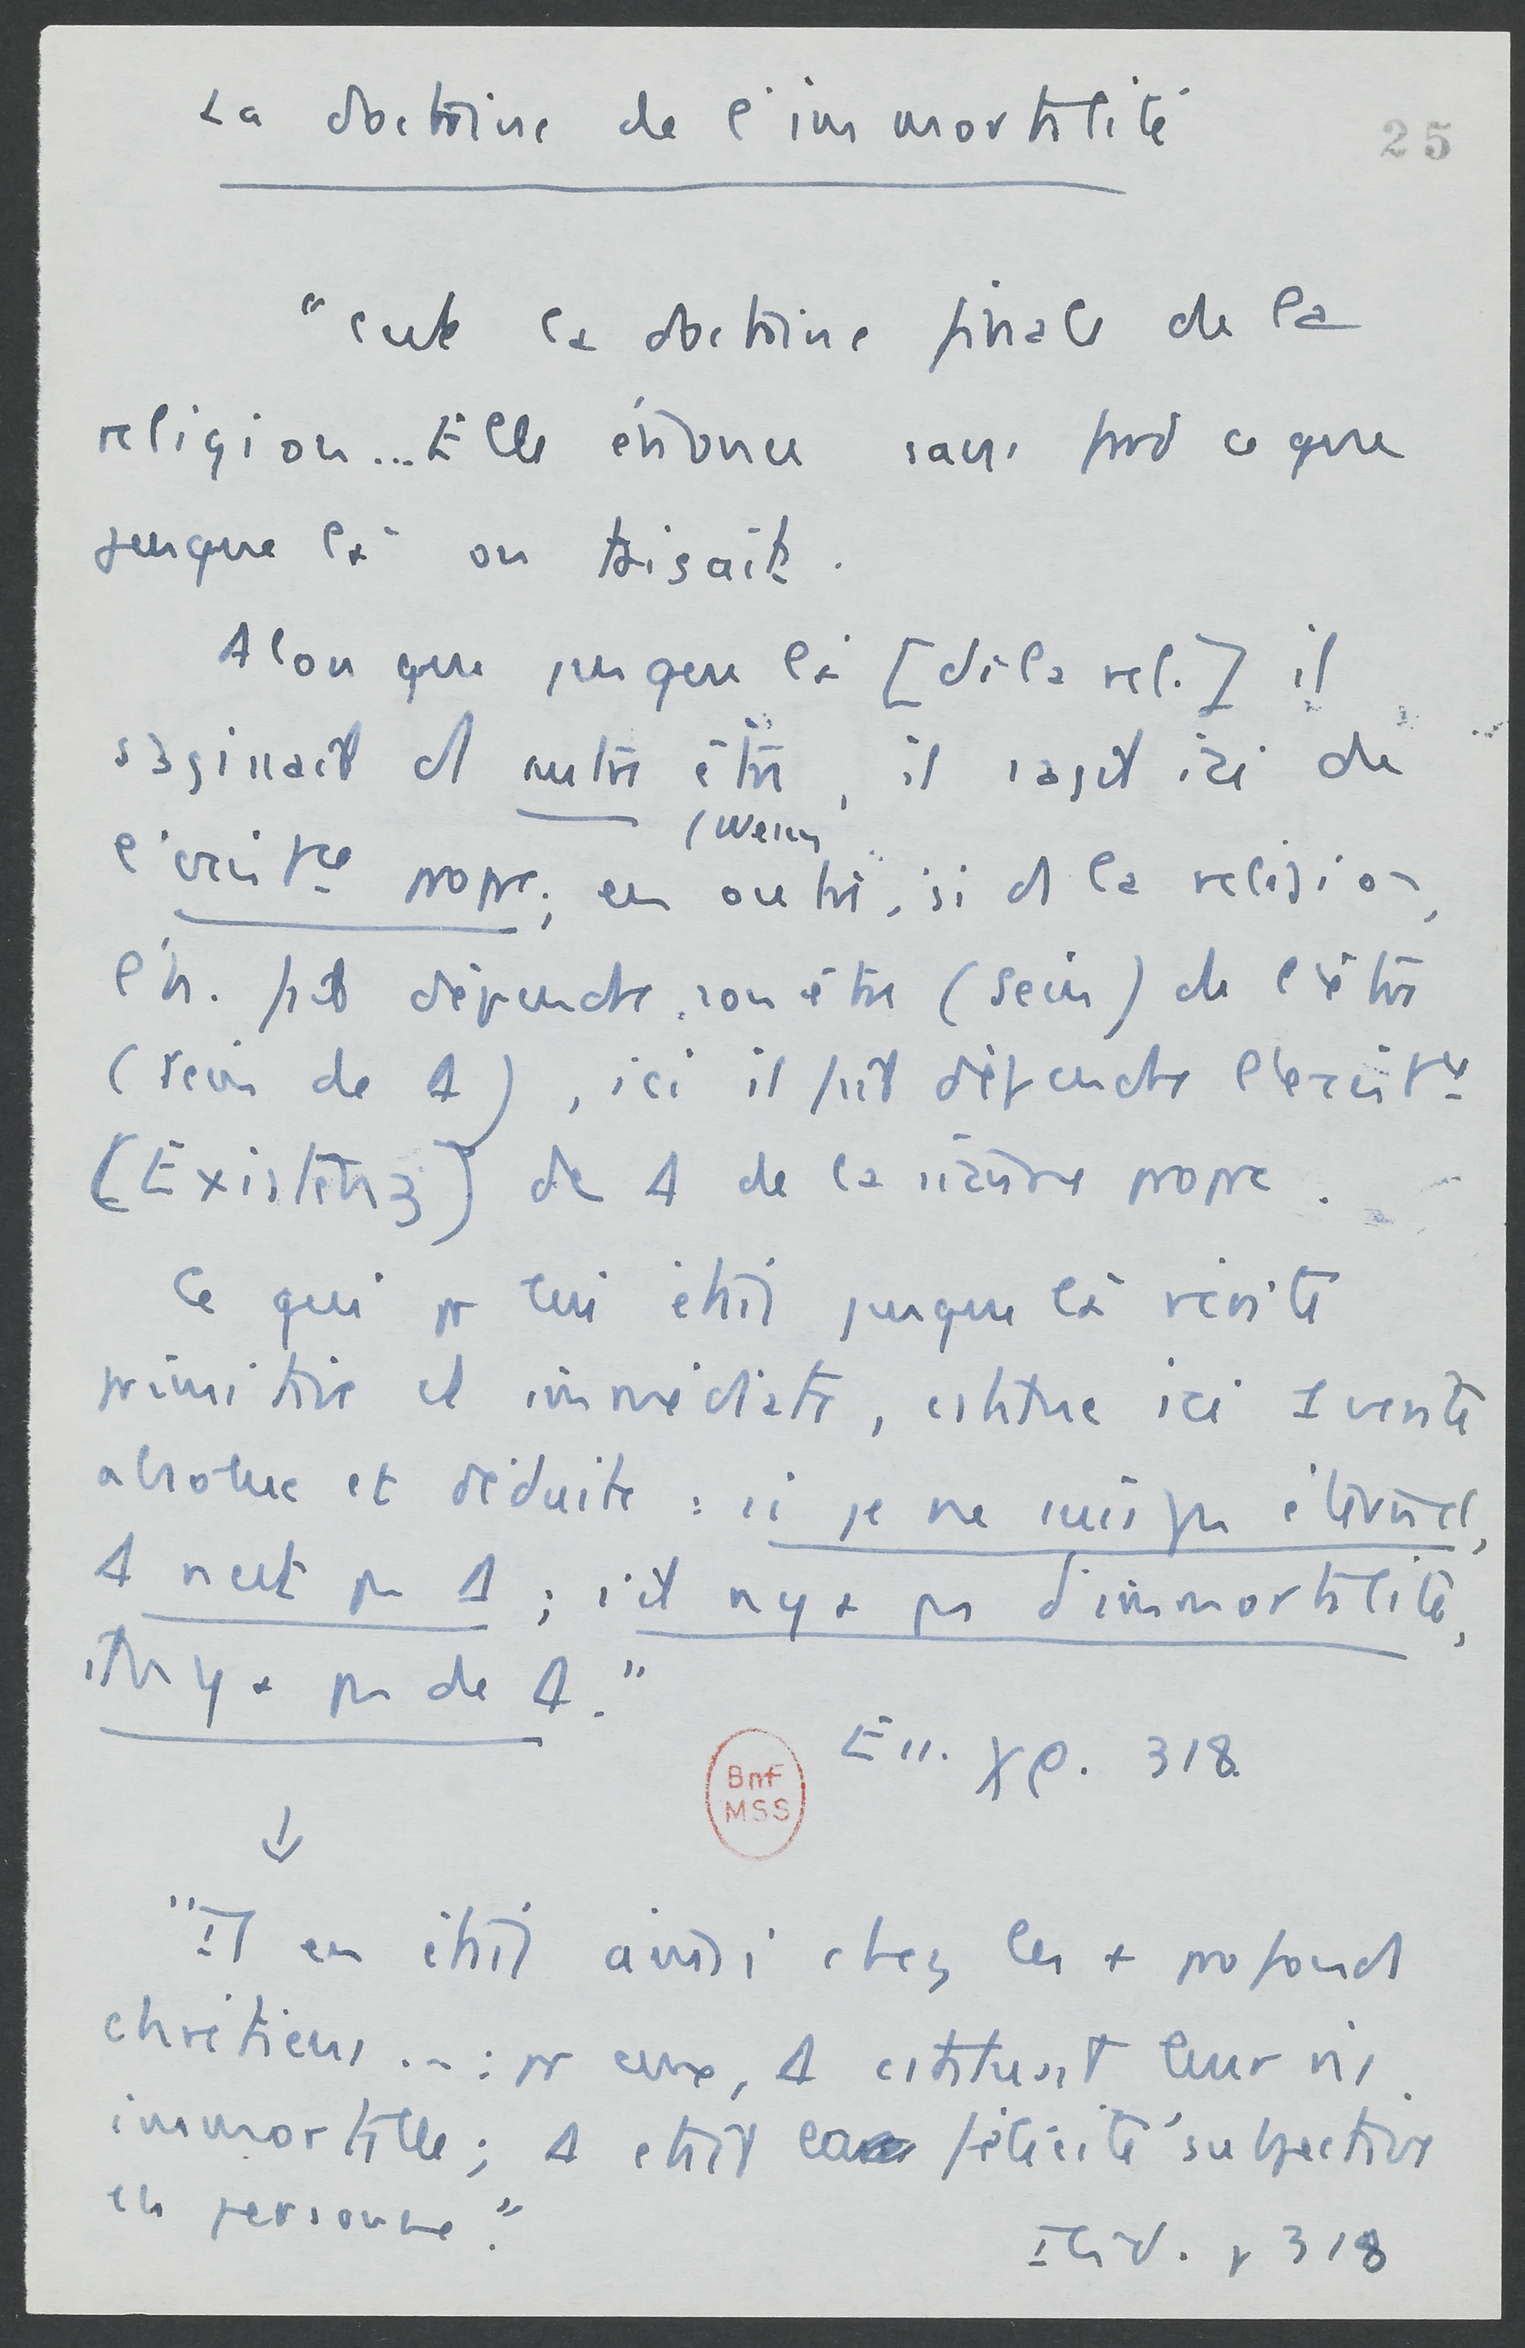 La doctrine de l'immortalité
25
"c'est la doctrine finale de la
religion... Elle énonce sans fard ce que
jusque là on taisait.
Alors que jusque là [ds la rel.] il
s'agissait d'1 autre être, il s'agit ici de
(Wesen
l'exist^ce propre; en outre, si ds la religion,
l'h. fait dépendre son être (sein) de l'être
(sein de Δ), ici il fait dépendre l'exist^ce
(Existenz) de Δ de la sienne propre.
Ce qui pr lui était jusque là vérité
primitive et immédiate, constitue ici 1 vérité
absolue et déduite : si je ne suis pas éternel,
Δ n'est pas Δ ; s'il n'y a pas d'immortalité,
il n'y a pas de Δ."
Ess. φ. 318.
BnF
MSS
↓
"Il en était ainsi chez les + profonds
chrétiens... : pr eux, Δ constituait leur vie
immortelle; Δ était la félicité subjective
en personne."
Ibid. p 318